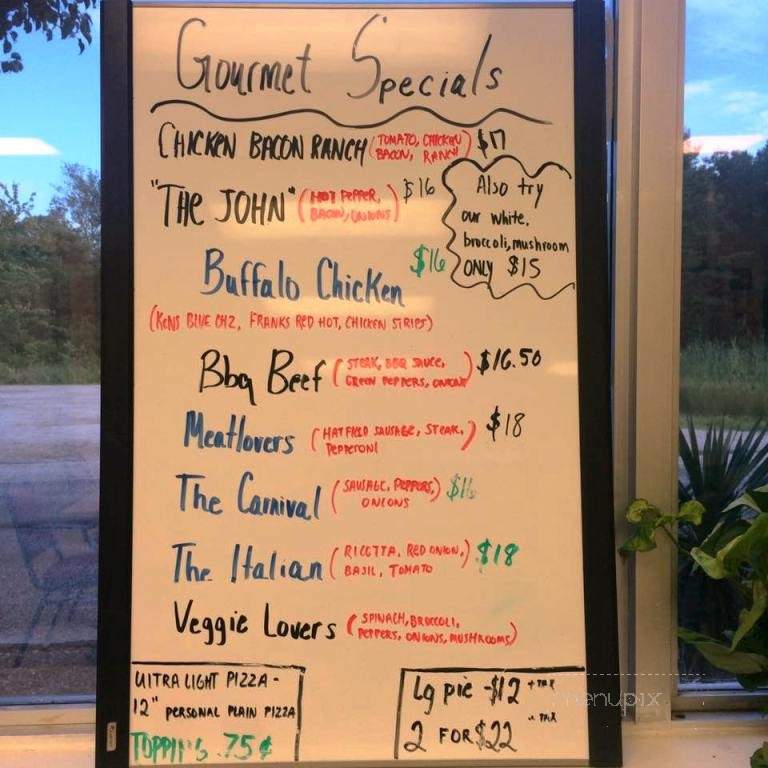 Gourmet Specials
CHICKEN BACON RANCH (TOMATO, CHICKEN $17
BACON, RANCH)
"THE JOHN" (HOT PEPPER, $16
BACON, ONIONS)
Also try
our white,
broccoli, mushroom
ONLY $15
Buffalo Chicken $16
(KENS BLUE CHZ, FRANKS RED HOT, CHICKEN STRIPS)
Bbq Beef (STEAK, BBQ SAUCE, $16.50
GREEN PEPPERS, ONIONS)
Meatlovers (HATFIELD SAUSAGE, STEAK,) $18
PEPPERONI
The Carnival (SAUSAGE, PEPPERS,) $16
ONIONS
The Italian (RICOTTA, RED ONION,) $18
BASIL, TOMATO
Veggie Lovers (SPINACH, BROCCOLI,
PEPPERS, ONIONS, MUSHROOMS)
UltRA LIGHT PIZZA -
12" PERSONAL PLAIN PIZZA
TOPPINGS .75¢
Lg pie - $12 + TAX
2 FOR $22 + TAX
menupix